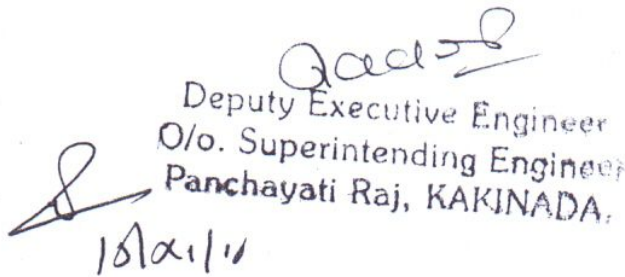 Deputy Executive Engineer
O/o. Superintending Engineer
Panchayati Raj, KAKINADA.